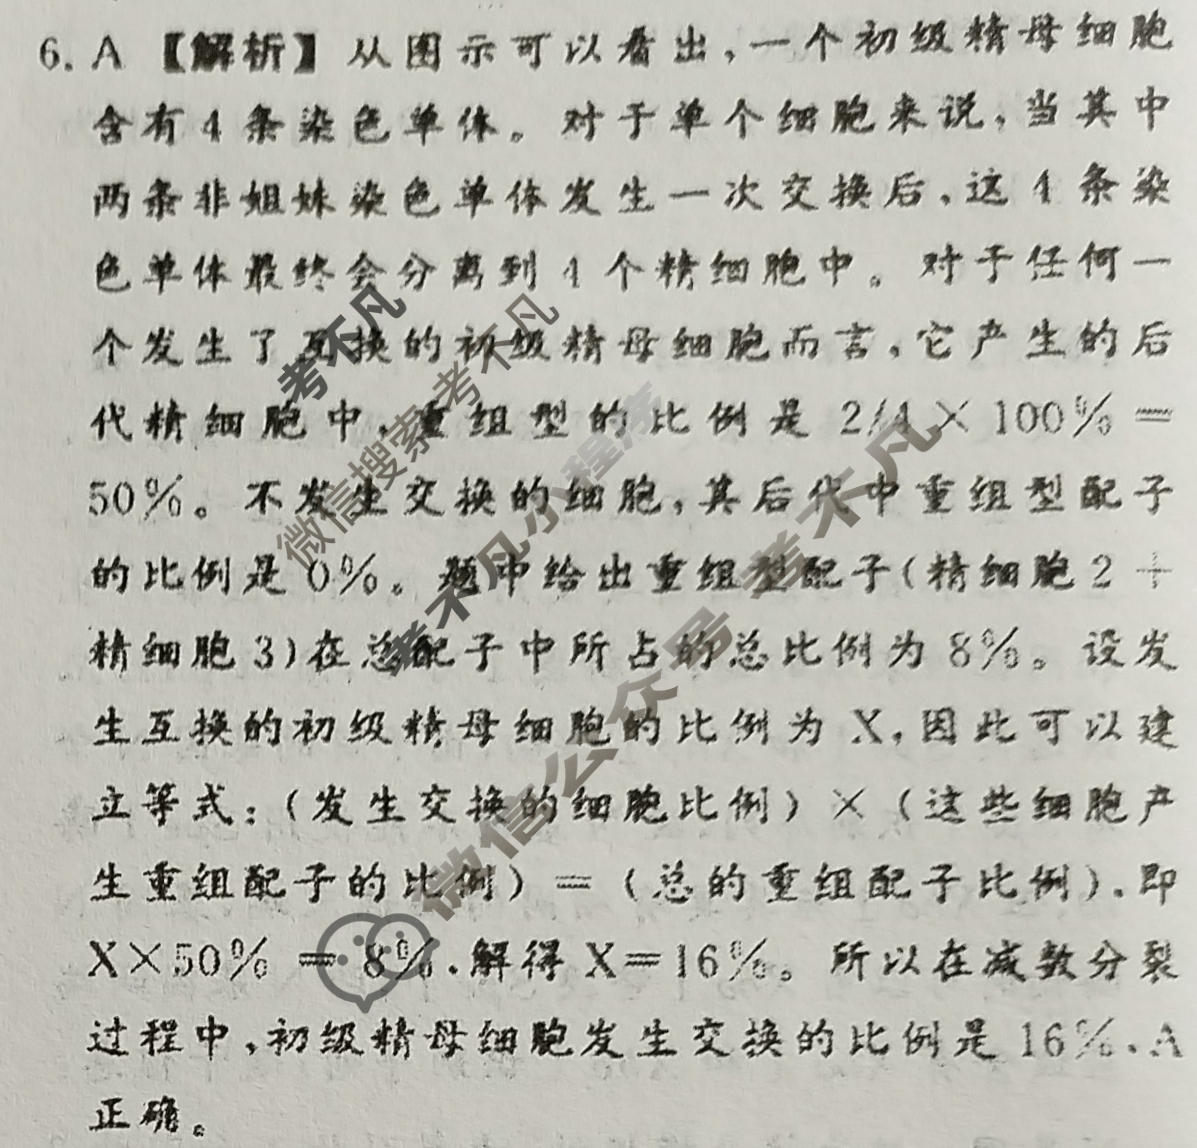 6. A 【解析】从图示可以看出,一个初级精母细胞
含有4条染色单体。对于单个细胞来说,当其中
两条非姐妹染色单体发生一次交换后,这4条染
色单体最终会分离到4个精细胞中。对于任何一
个发生了互换的初级精母细胞而言,它产生的后
代精细胞中,重组型的比例是2/4×100%=
50%。不发生交换的细胞,其后代中重组型配子
的比例是0%。题中给出重组型配子(精细胞2+
精细胞3)在总配子中所占的总比例为8%。设发
生互换的初级精母细胞的比例为X,因此可以建
立等式:(发生交换的细胞比例)×(这些细胞产
生重组配子的比例)=(总的重组配子比例),即
X×50%=8%,解得X=16%。所以在减数分裂
过程中,初级精母细胞发生交换的比例是16%,A
正确。
考不凡
微信搜索 考不凡
考不凡小程序
微信公众号 考不凡